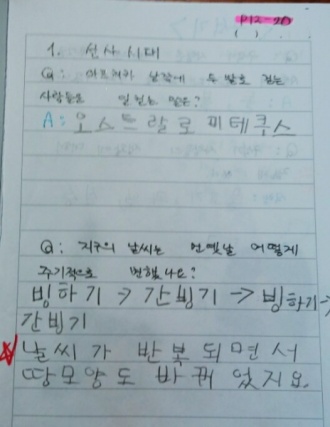 P12-20
( )
1. 선사 시대
Q: 아프리카 남쪽에 두 발로 걷는
사람들을 일컫는 말은?
A: 오스트랄로피테쿠스
Q: 지구의 날씨는 먼 옛날 어떻게
주기적으로 변했나요?
빙하기 → 간빙기 → 빙하기 →
간빙기
날씨가 반복되면서
땅모양도 바뀌었지요.